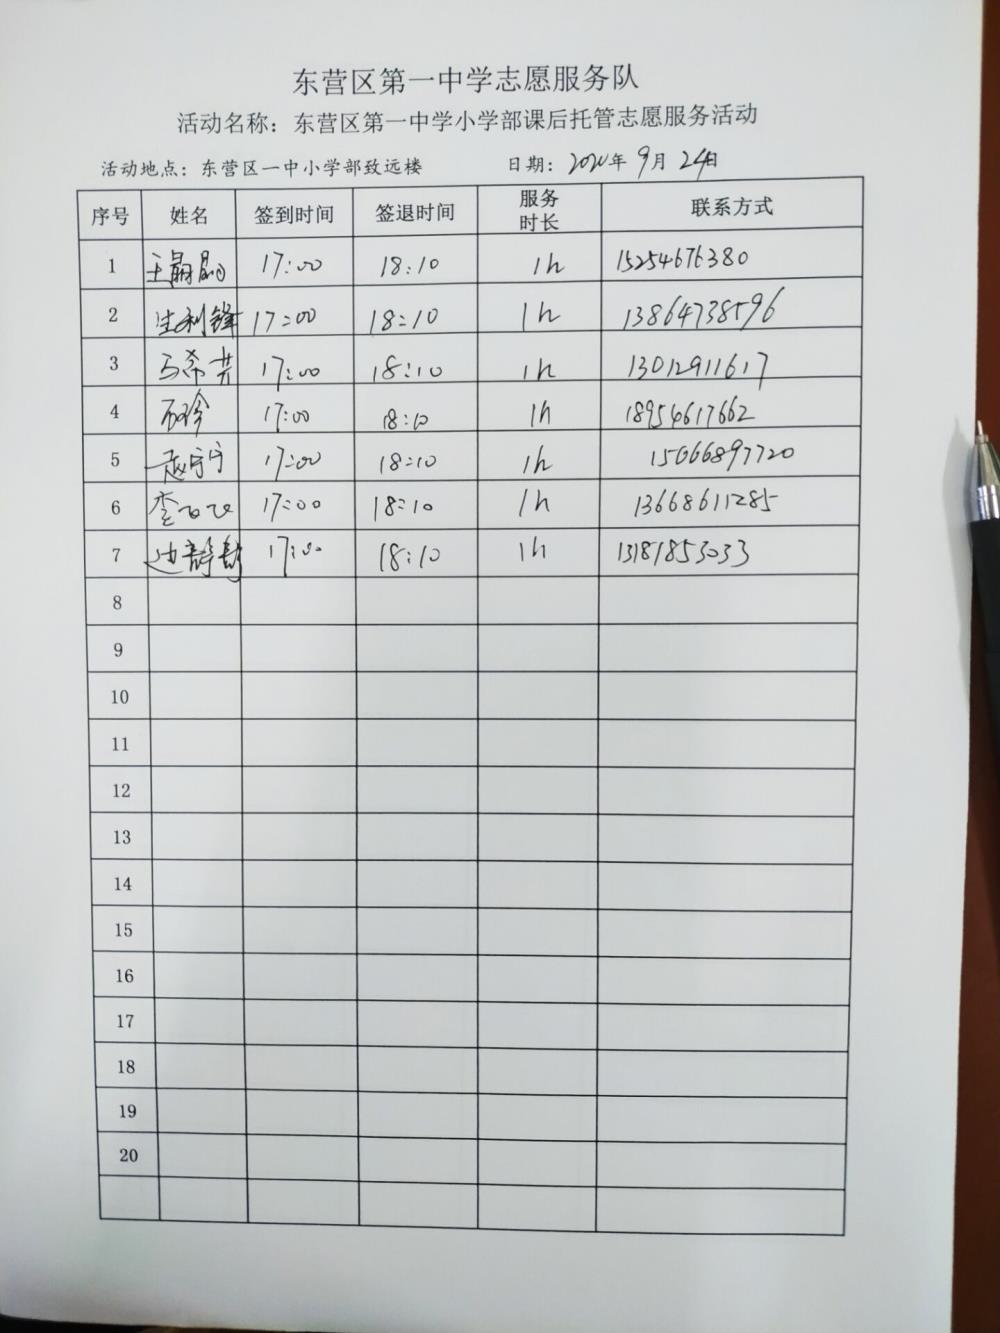 东营区第一中学志愿服务队
活动名称：东营区第一中学小学部课后托管志愿服务活动
活动地点：东营区一中小学部致远楼 日期：2020年9月24日
序号 姓名 签到时间 签退时间 服务时长 联系方式
1 王 17:00 18:10 1h 15254676380
2 生利锋 17:00 18:10 1h 13864738596
3 马希芸 17:00 18:10 1h 13012911617
4 石玲 17:00 18:10 1h 18954617662
5 赵宁宁 17:00 18:10 1h 15066897720
6 李 17:00 18:10 1h 13668611285
7 边静静 17:00 18:10 1h 13181853033
8
9
10
11
12
13
14
15
16
17
18
19
20